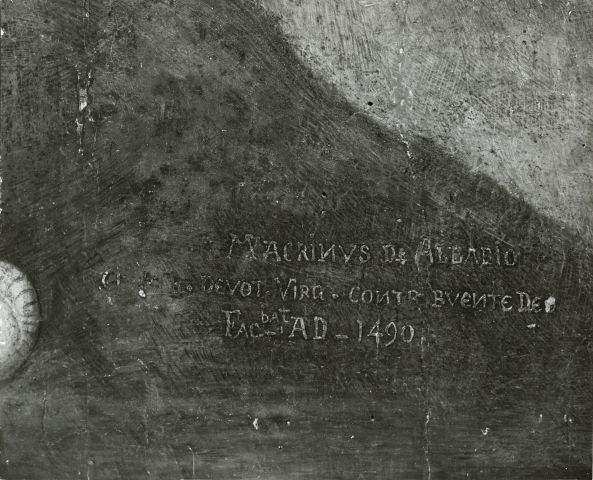 MACRINVS DE ALBADIO
DEVOT. VIRG. CONTR BVENTE DEO
FACbat AD - 1490